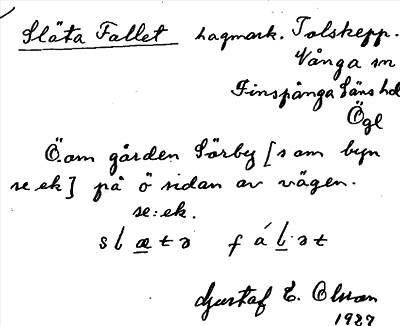 Släta Fallet hagmark. Tolskepp.
Vånga sn
Finspånga läns hd
Ögl
Ö. om gården Sörby [som byn
se ek] på ö sidan av vägen.
se: ek.
slætə fál·ət
Gustaf E. Olsson
1927